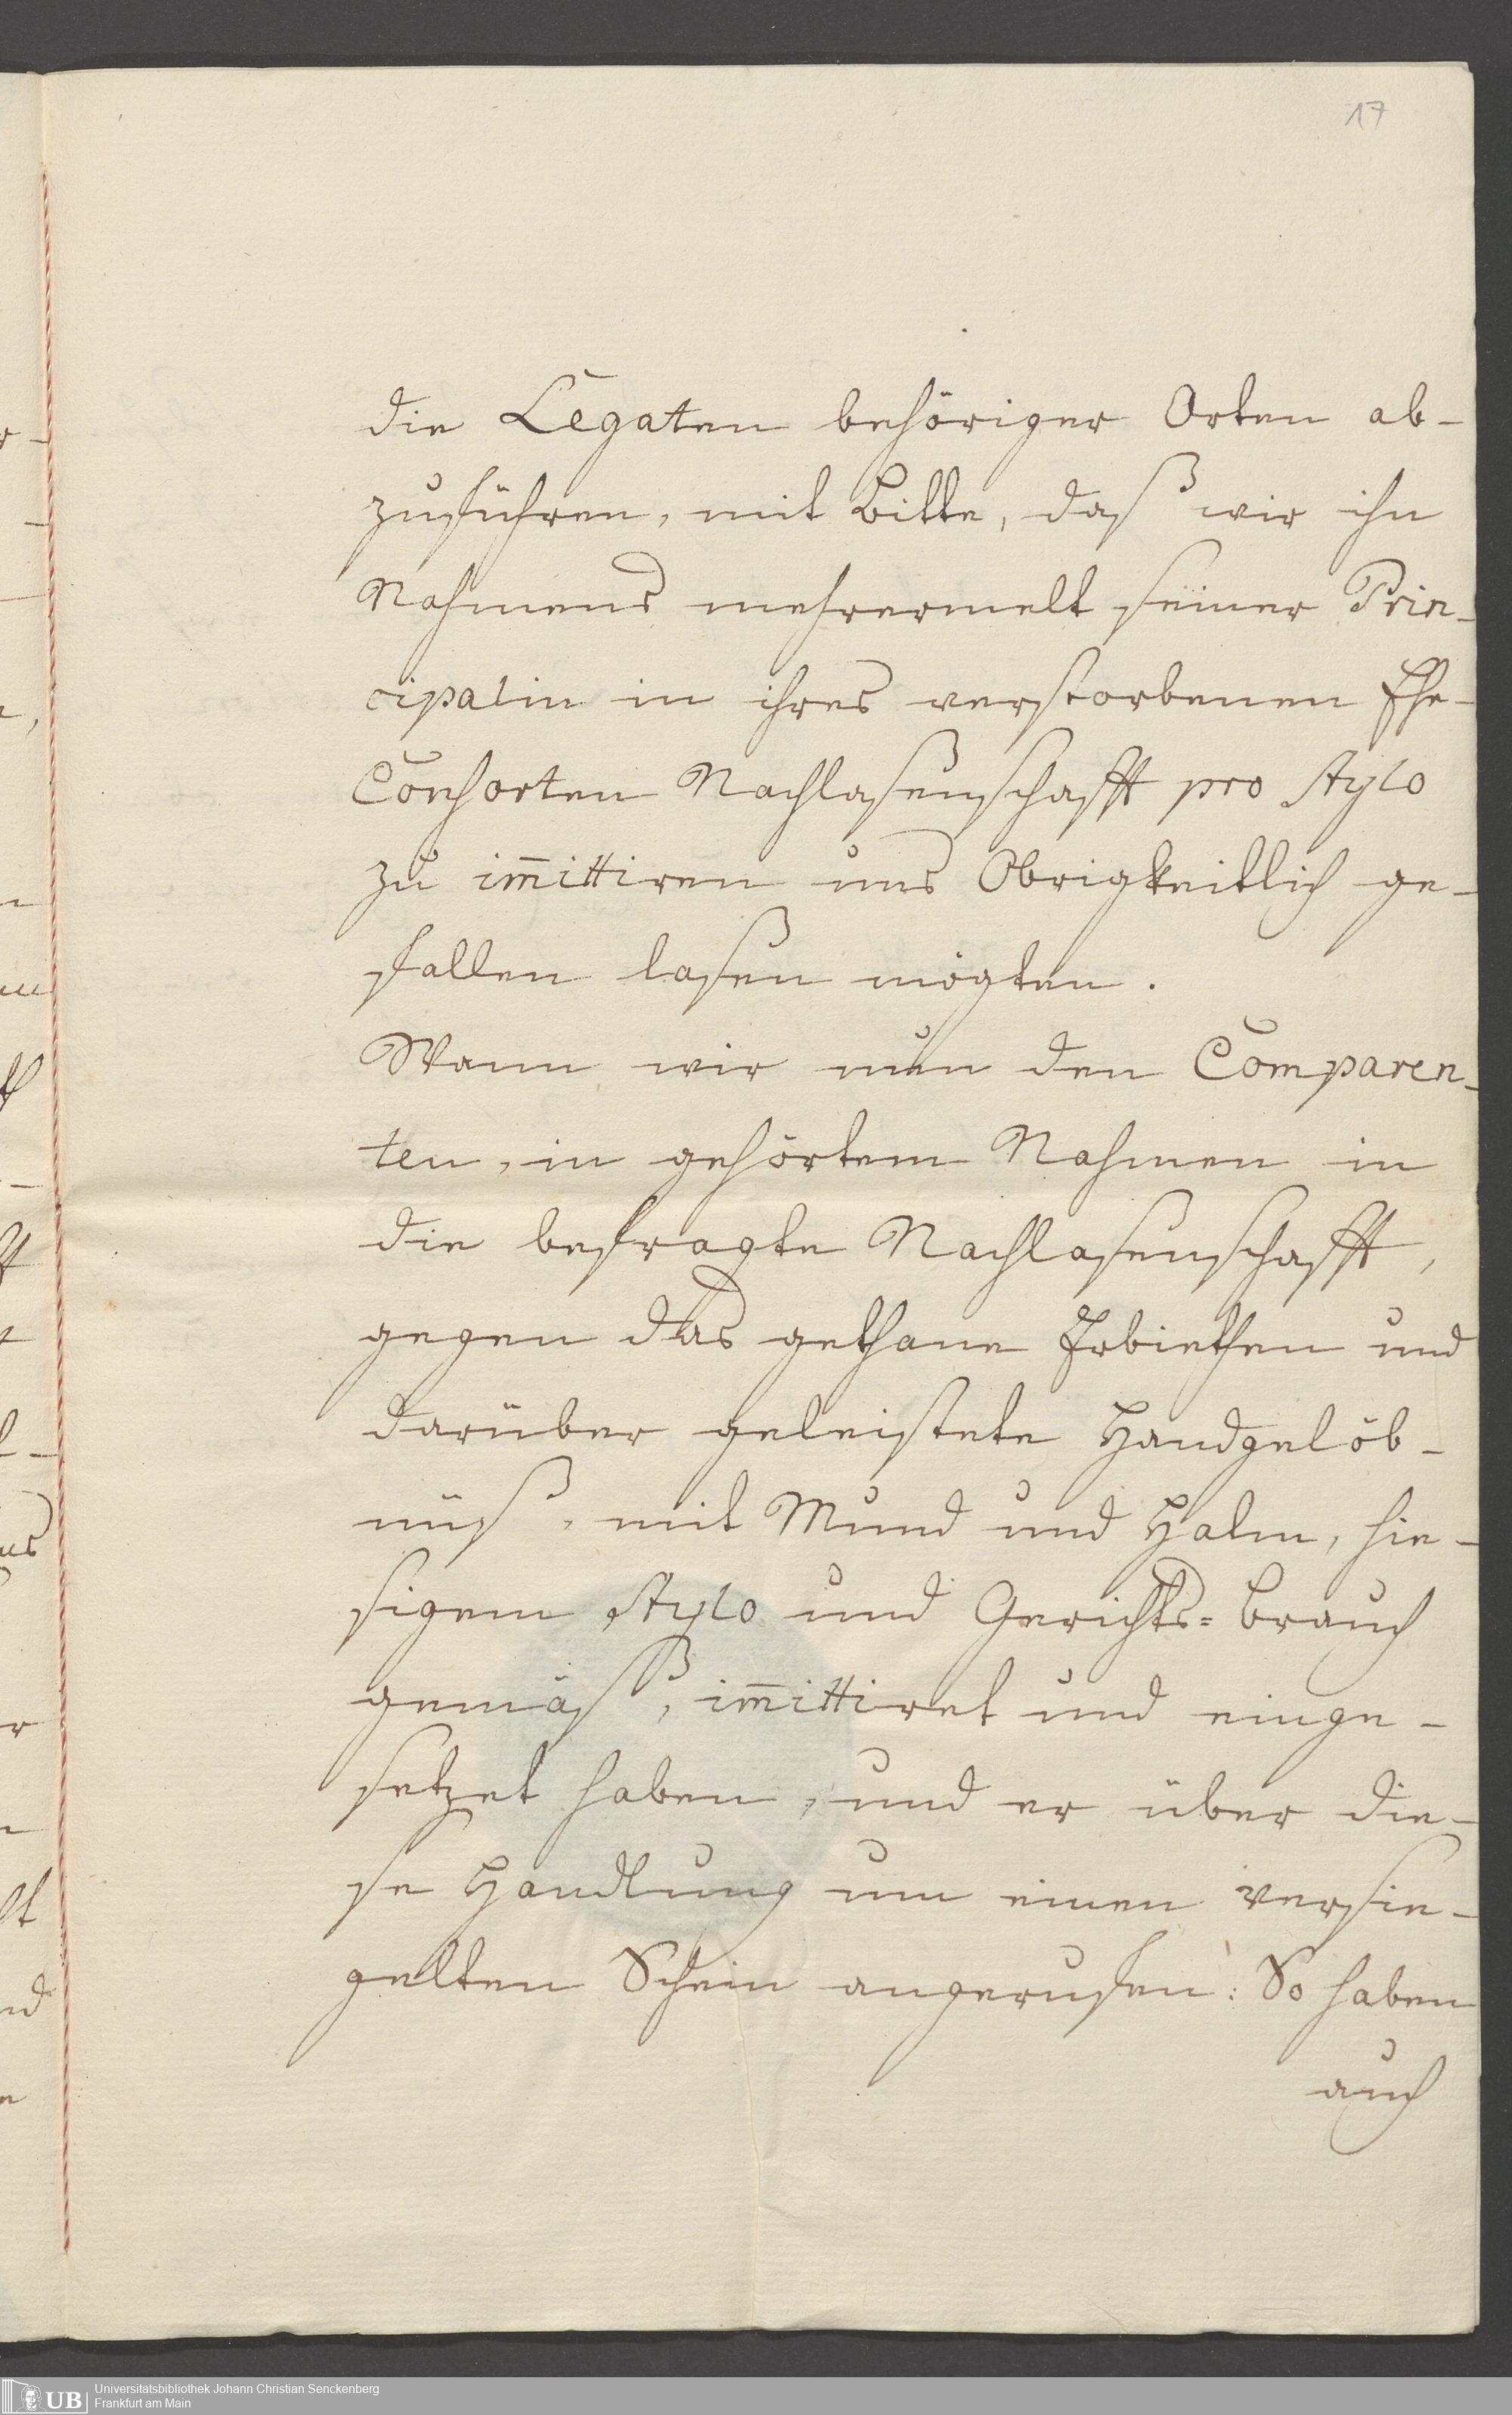 17
die Legaten behöriger Orten ab-
zuführen, mit Bitte, daß wir ihn
Nahmens mehrermelt seiner Prin-
cipalin in ihres verstorbenen Ehe-
Consorten Nachlasenschafft pro stylo
zu im̄ittiren uns Obrigkeitlich ge-
fallen lasen mögten.
Wann wir nun den Comparen-
ten, in gehörtem Nahmen in
die befragte Nachlasenschafft,
gegen das gethane Erbiethen und
darüber geleistete Handgelöb-
nüß, mit Mund und Halm, hie-
sigem stylo und Gerichts=brauch
gemäß, im̄ittiret und einge-
setzet haben, und er über die-
se Handlung um einen versie-
gelten Schein angerufen: So haben
auch
UB
Universitätsbibliothek Johann Christian Senckenberg
Frankfurt am Main